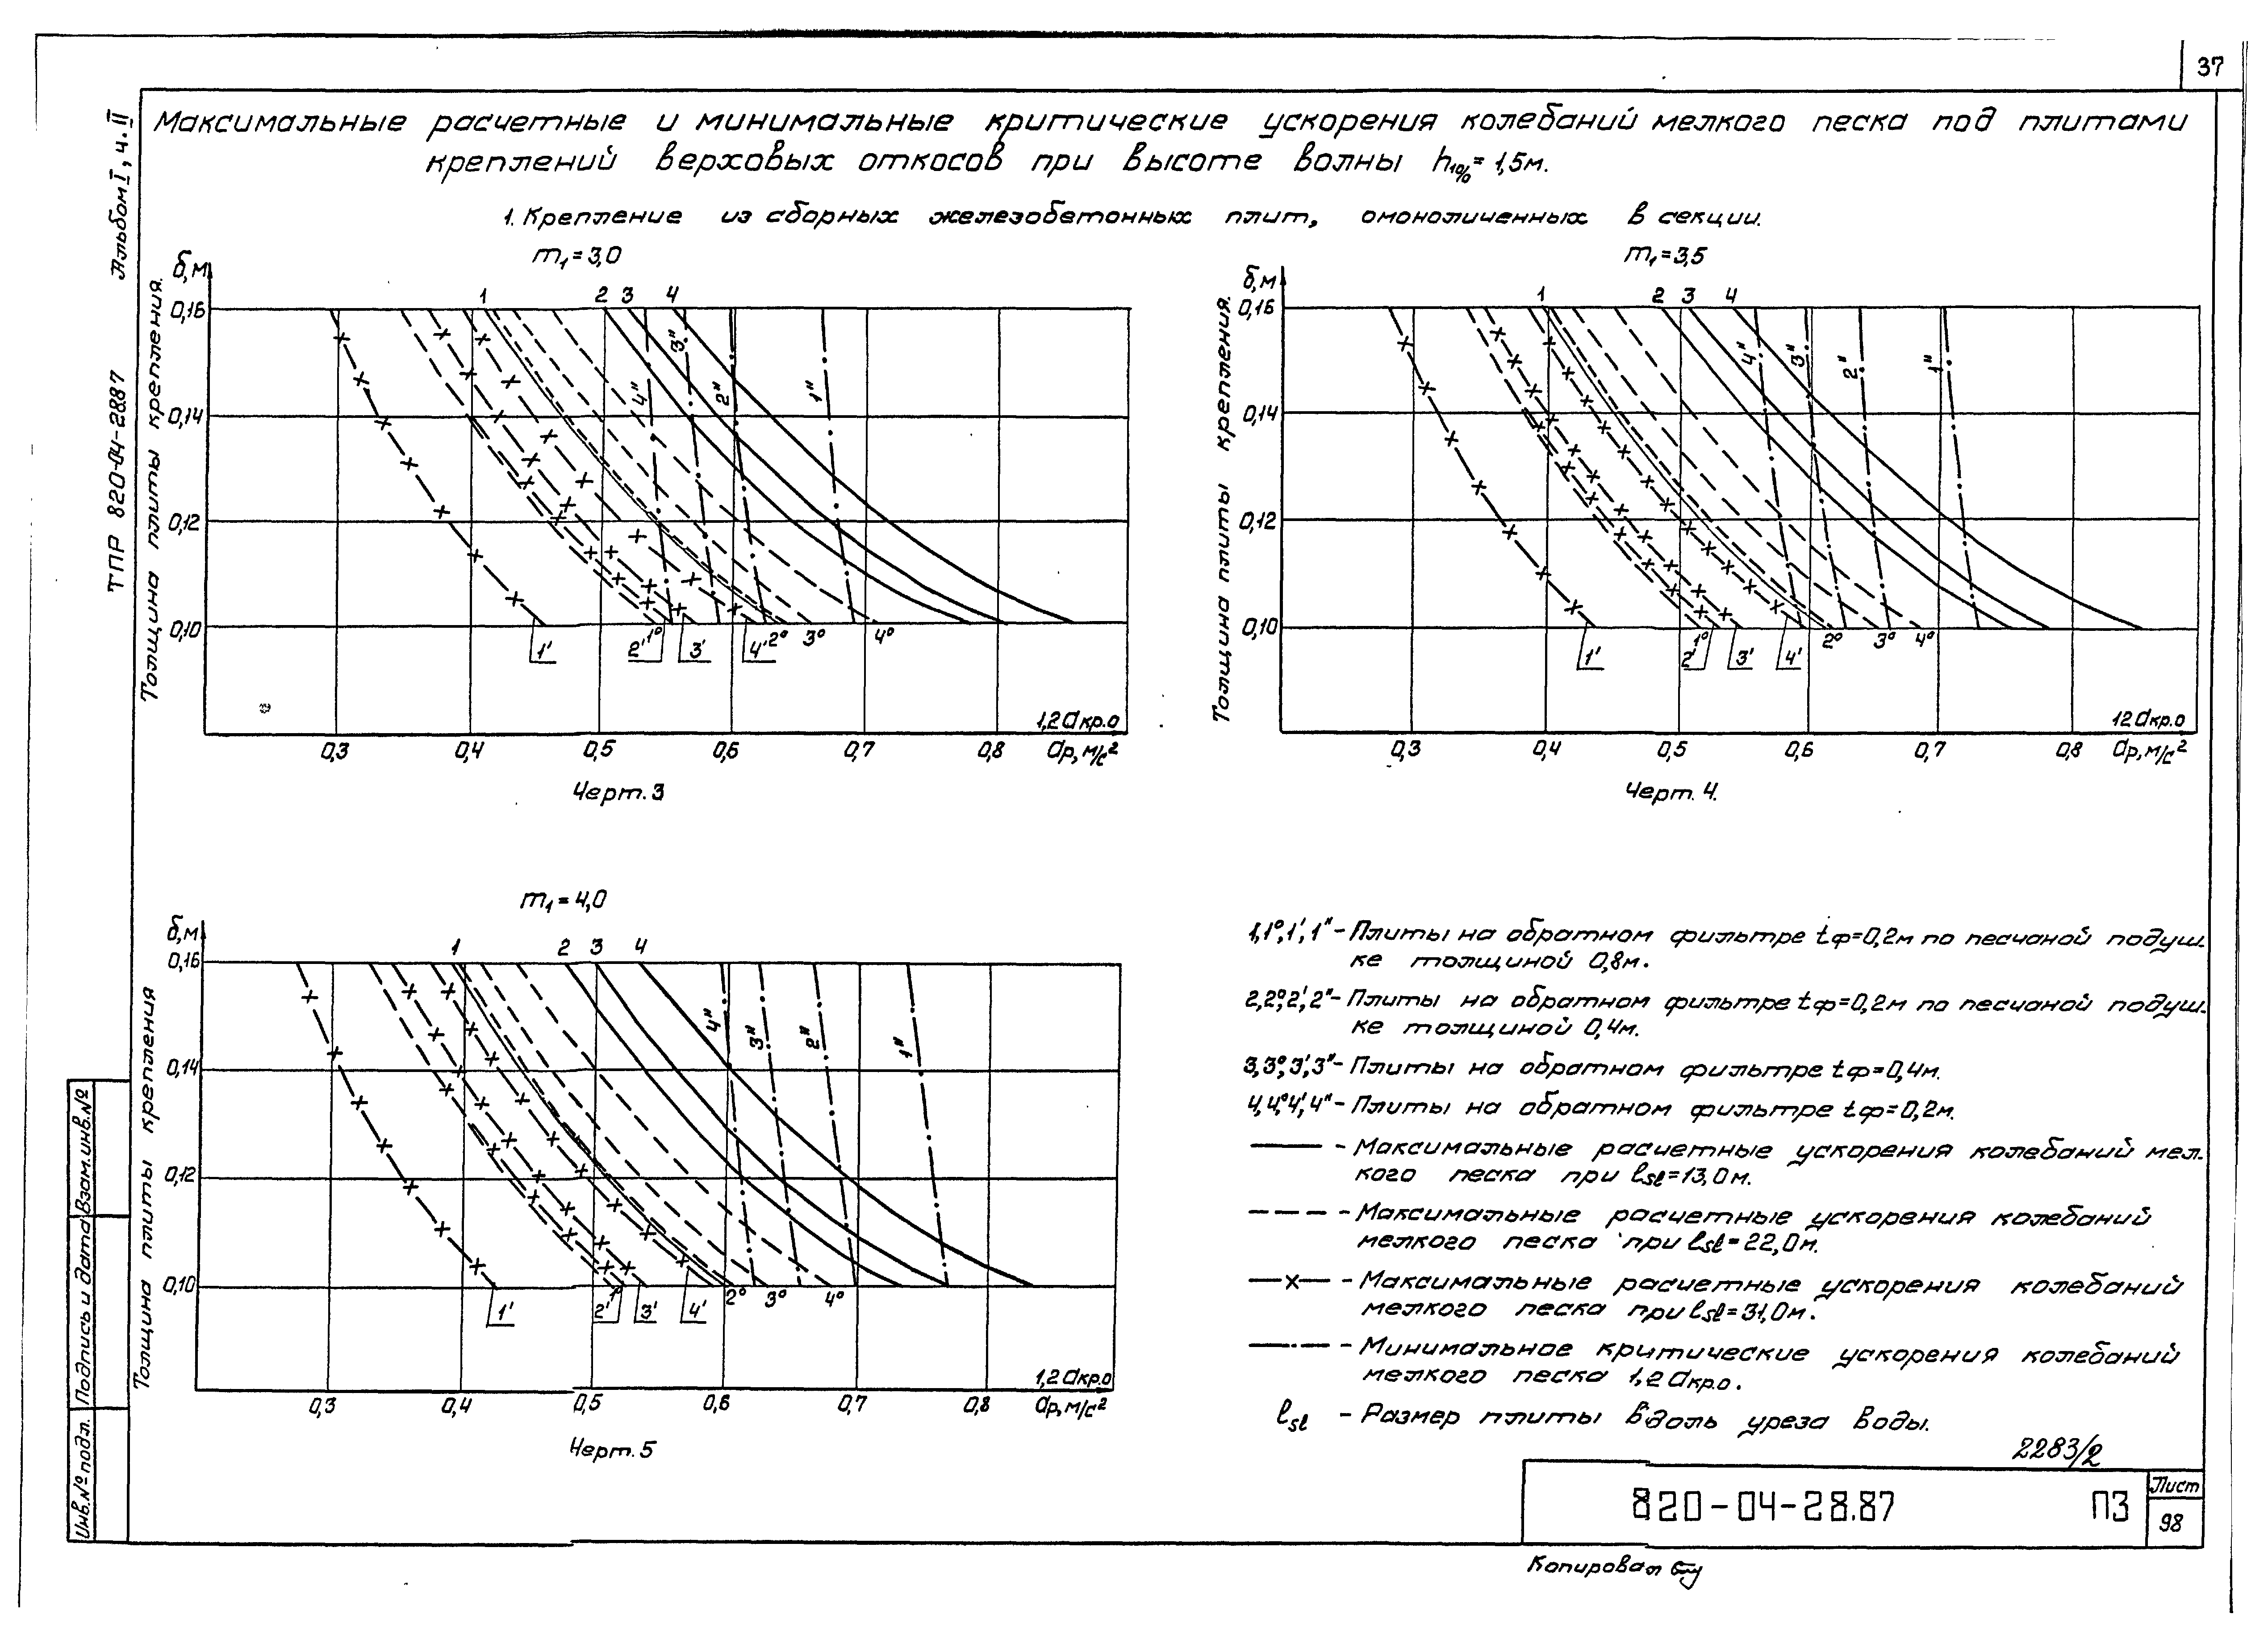 37
Альбом I, ч. II
ТПР 820-04-28.87
Максимальные расчетные и минимальные критические ускорения колебаний мелкого песка под плитами
креплений верховых откосов при высоте волны h1%= 1,5м.
1. Крепление из сборных железобетонных плит, омоноличенных в секции.
m1=3,0
Толщина плиты крепления.
δ,м
1 2 3 4
0,16
0,14
0,12
0,10
4" 3" 2" 1"
1' 2' 1° 3' 4' 2° 3° 4°
1,2 aкр.о
0,3 0,4 0,5 0,6 0,7 0,8 aр, м/с²
Черт. 3
m1=3,5
Толщина плиты крепления.
δ,м
1 2 3 4
0,16
0,14
0,12
0,10
4" 3" 2" 1"
1' 1° 2' 3' 4' 2° 3° 4°
12 aкр.о
0,3 0,4 0,5 0,6 0,7 0,8 aр, м/с²
Черт. 4.
m1=4,0
Толщина плиты крепления
δ,м
1 2 3 4
0,16
0,14
0,12
0,10
4" 3" 2" 1"
1' 2' 1° 3' 4' 2° 3° 4°
1,2 aкр.о
0,3 0,4 0,5 0,6 0,7 0,8 aр, м/с²
Черт. 5
1,1°,1',1" - Плиты на обратном фильтре tф=0,2м по песчаной подуш-
ке толщиной 0,8м.
2,2°,2',2" - Плиты на обратном фильтре tф=0,2м по песчаной подуш-
ке толщиной 0,4м.
3,3°,3',3" - Плиты на обратном фильтре tф=0,4м.
4,4°,4',4" - Плиты на обратном фильтре tф=0,2м.
- Максимальные расчетные ускорения колебаний мел-
кого песка при lsl=13,0м.
- Максимальные расчетные ускорения колебаний
мелкого песка при lsl=22,0м.
- Максимальные расчетные ускорения колебаний
мелкого песка при lsl=31,0м.
- Минимальное критические ускорения колебаний
мелкого песка 1,2 aкр.о.
lsl - Размер плиты вдоль уреза воды.
2283/2
820-04-28.87 ПЗ
Лист
98
Копировал
Инв. № подл. Подпись и дата Взам. инв. №